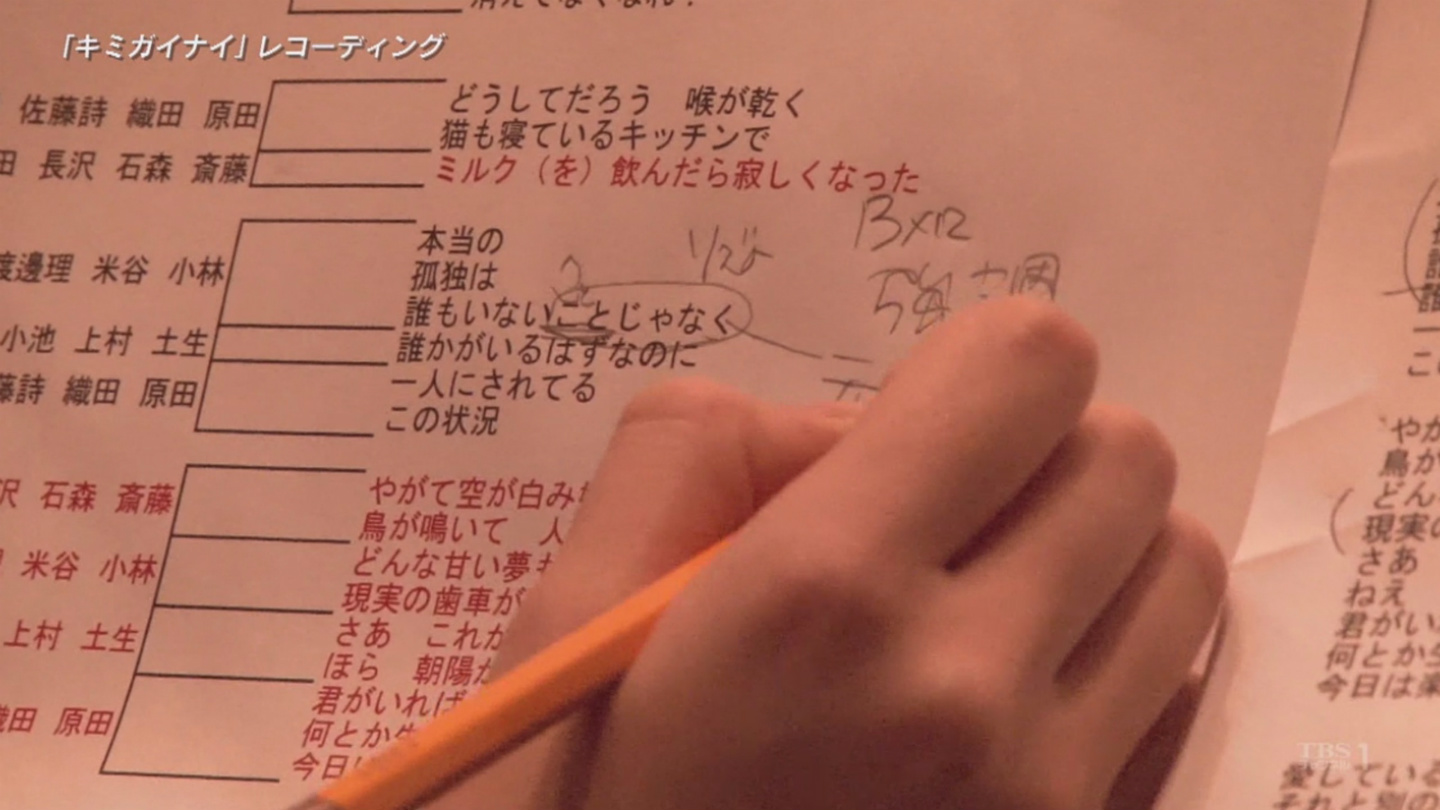 消えてなくなれ！
「キミガイナイ」レコーディング
佐藤詩 織田 原田
どうしてだろう 喉が乾く
猫も寝ているキッチンで
田 長沢 石森 斎藤
ミルク（を）飲んだら寂しくなった
13×12
本当の
渡邊理 米谷 小林
孤独は
誰もいないことじゃなく
小池 上村 土生
誰かがいるはずなのに
藤詩 織田 原田
一人にされてる
この状況
沢 石森 斎藤
やがて空が白み
鳥が鳴いて 人
米谷 小林
どんな甘い夢も
現実の歯車が
上村 土生
さあ これか
ほら 朝陽が
織田 原田
君がいれば
何とか生
今日は
誰
一
この
やが
鳥が
どん
現実の
さあ
ねえ
君がい
何とか生
今日は楽
愛している
それと別の
TBS 1